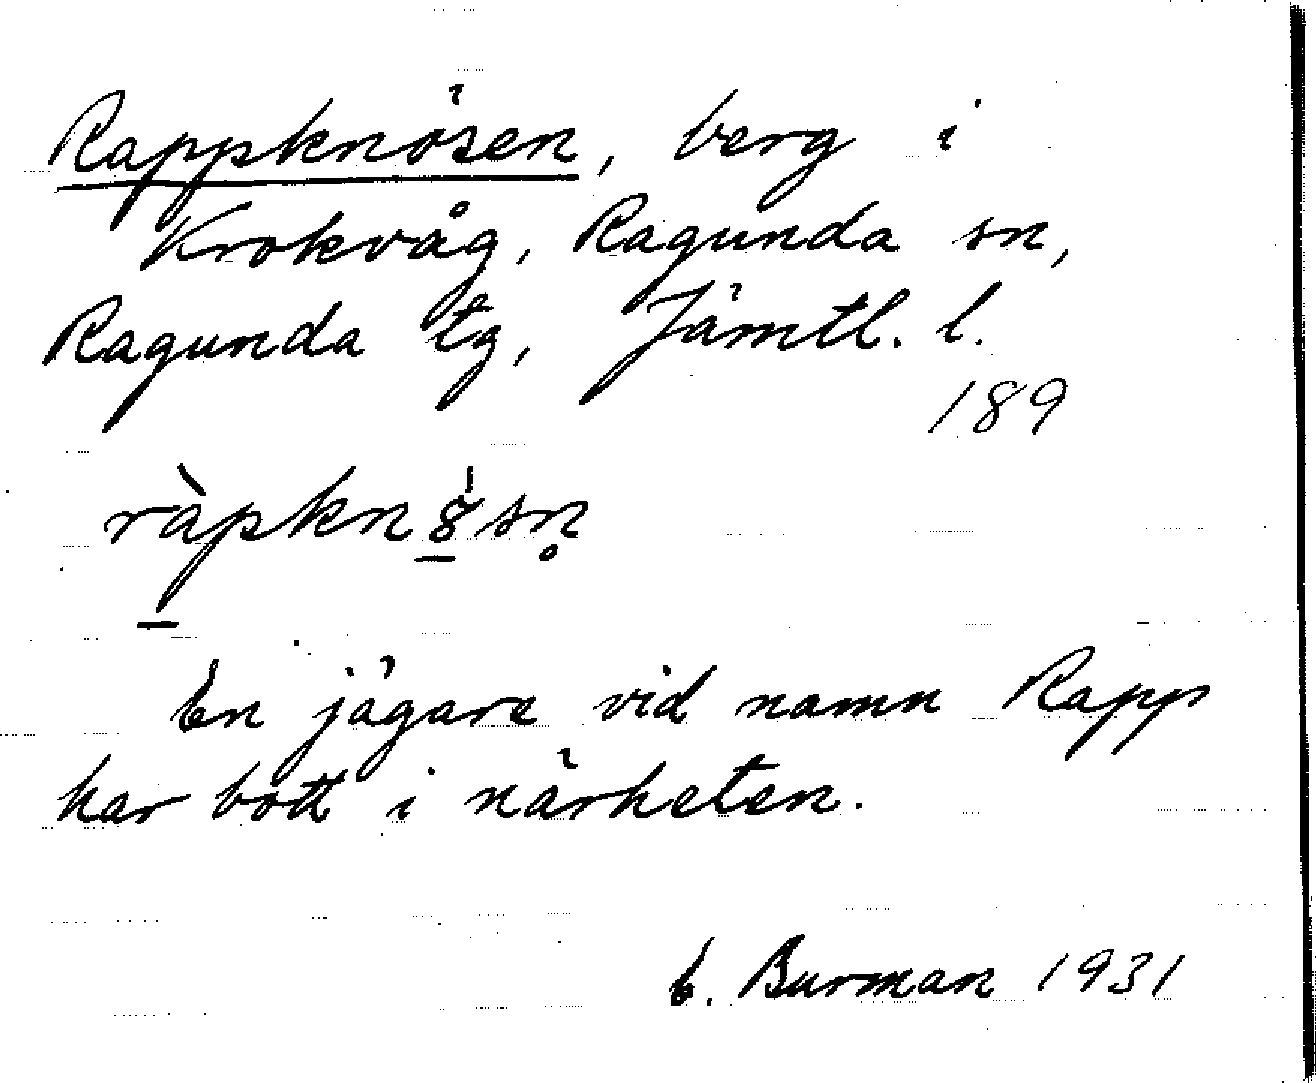 Rappknösen, berg i
Krokvåg, Ragunda sn,
Ragunda tg, Jämtl. l.
189
ràpkn8̲̍sn̥
En jägare vid namn Rapp
har bott i närheten.
E. Burman 1931